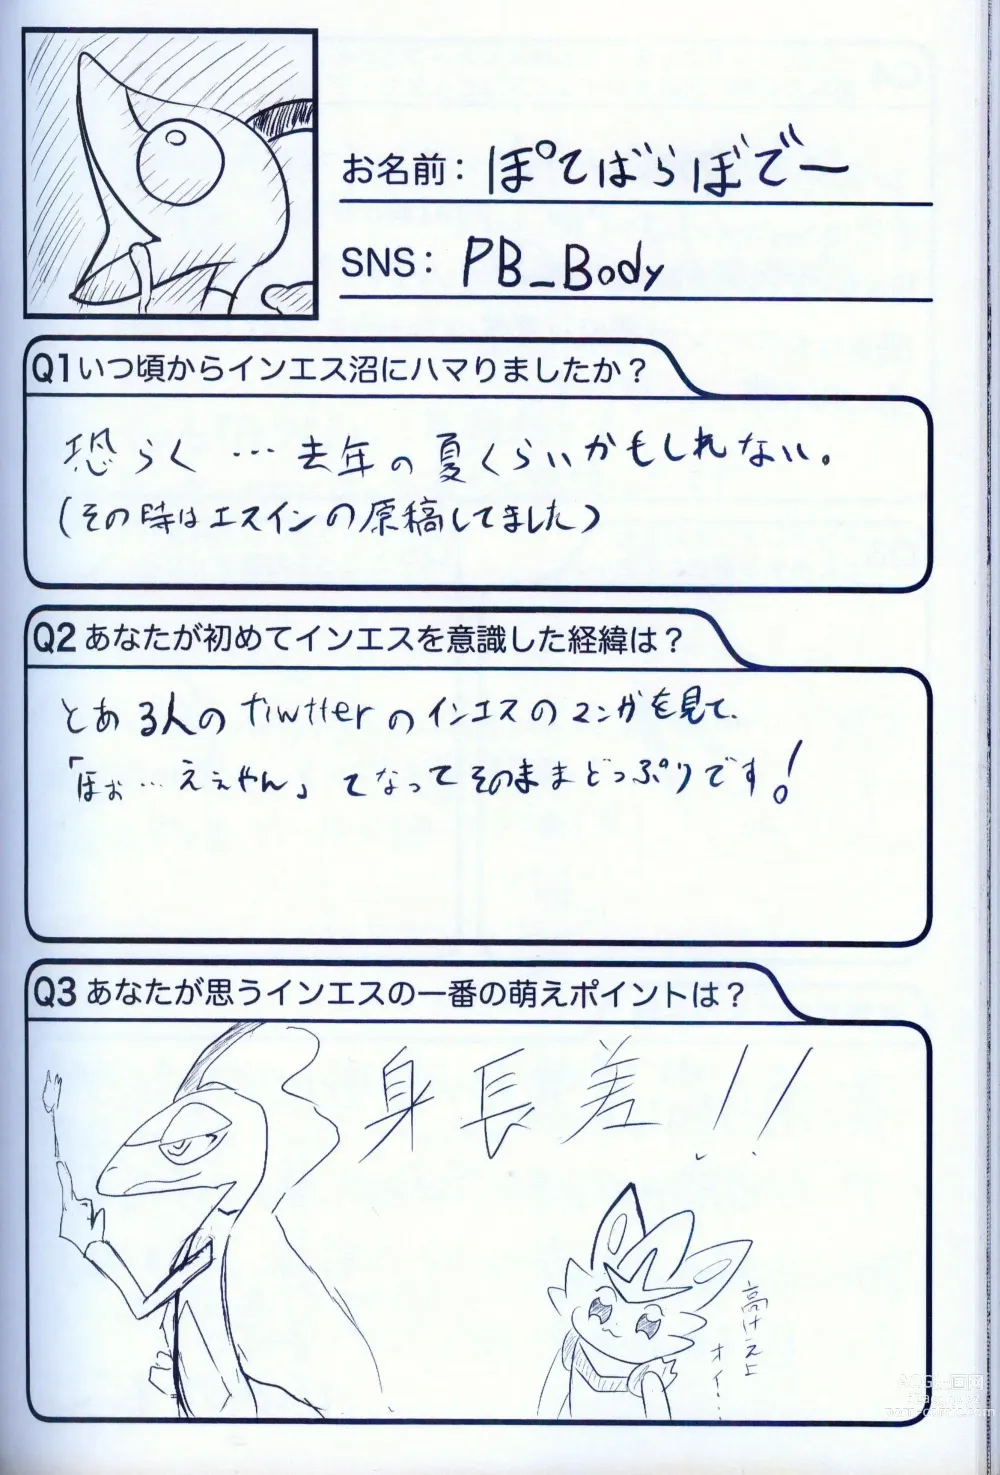 お名前：ぽてばらぼでー
SNS：PB_Body
Q1いつ頃からインエス沼にハマりましたか？
恐らく…去年の夏くらいかもしれない。
(その時はエスインの原稿してました)
Q2あなたが初めてインエスを意識した経緯は？
とある人のtiwtterのインエスのマンガを見て、
「ほぉ…ええやん」てなってそのままどっぷりです！
Q3あなたが思うインエスの一番の萌えポイントは？
身長差！！
高けえよ
オイ…